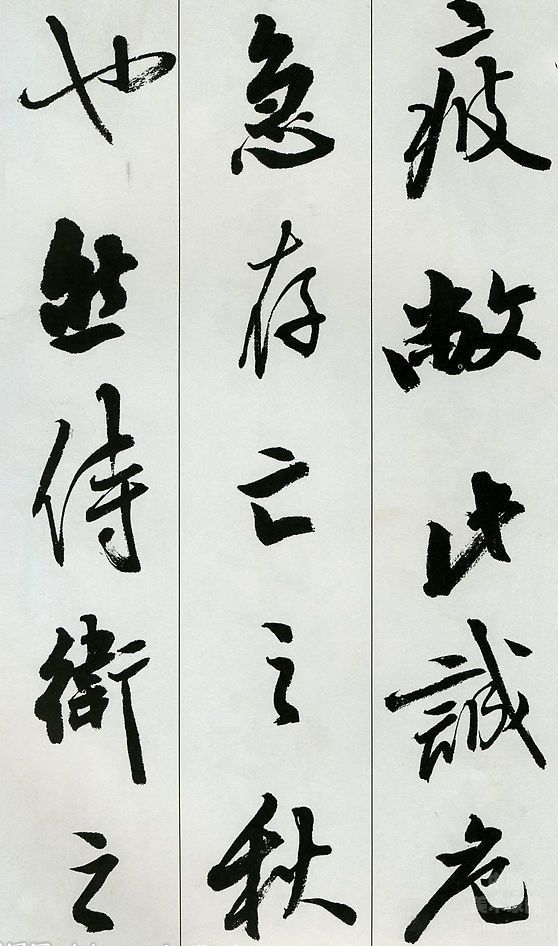 疲敝此誠危
急存亡之秋
也然侍衛之